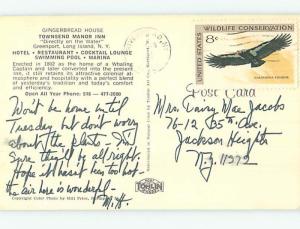 GINGERBREAD HOUSE
TOWNSEND MANOR INN
"Directly on the Water"
Greenport, Long Island, N. Y.
HOTEL • RESTAURANT • COCKTAIL LOUNGE
SWIMMING POOL • MARINA
Erected in 1892 as the home of a Whaling
Captain and later converted into the present
inn, it still retains its attractive colonial at-
mosphere and hospitality with a perfect blend
of yesterday's tradition and today's
comfort.
Open All Year Phone: 516 — 477-2000
Won't be home until
Tuesday but don't worry
about the plants - I'm
sure they'll be all right.
Hope it hasn't been too hot -
the air here is wonderful -
M.H.
Copyright Color Photo by Milt Price,
TOMLIN
UNITED STATES
8c
WILDLIFE CONSERVATION
CALIFORNIA CONDOR
Post Card
Mrs. Daisy Mae Jacobs
76-12 35th Ave.
Jackson Heights
N.Y. 11372